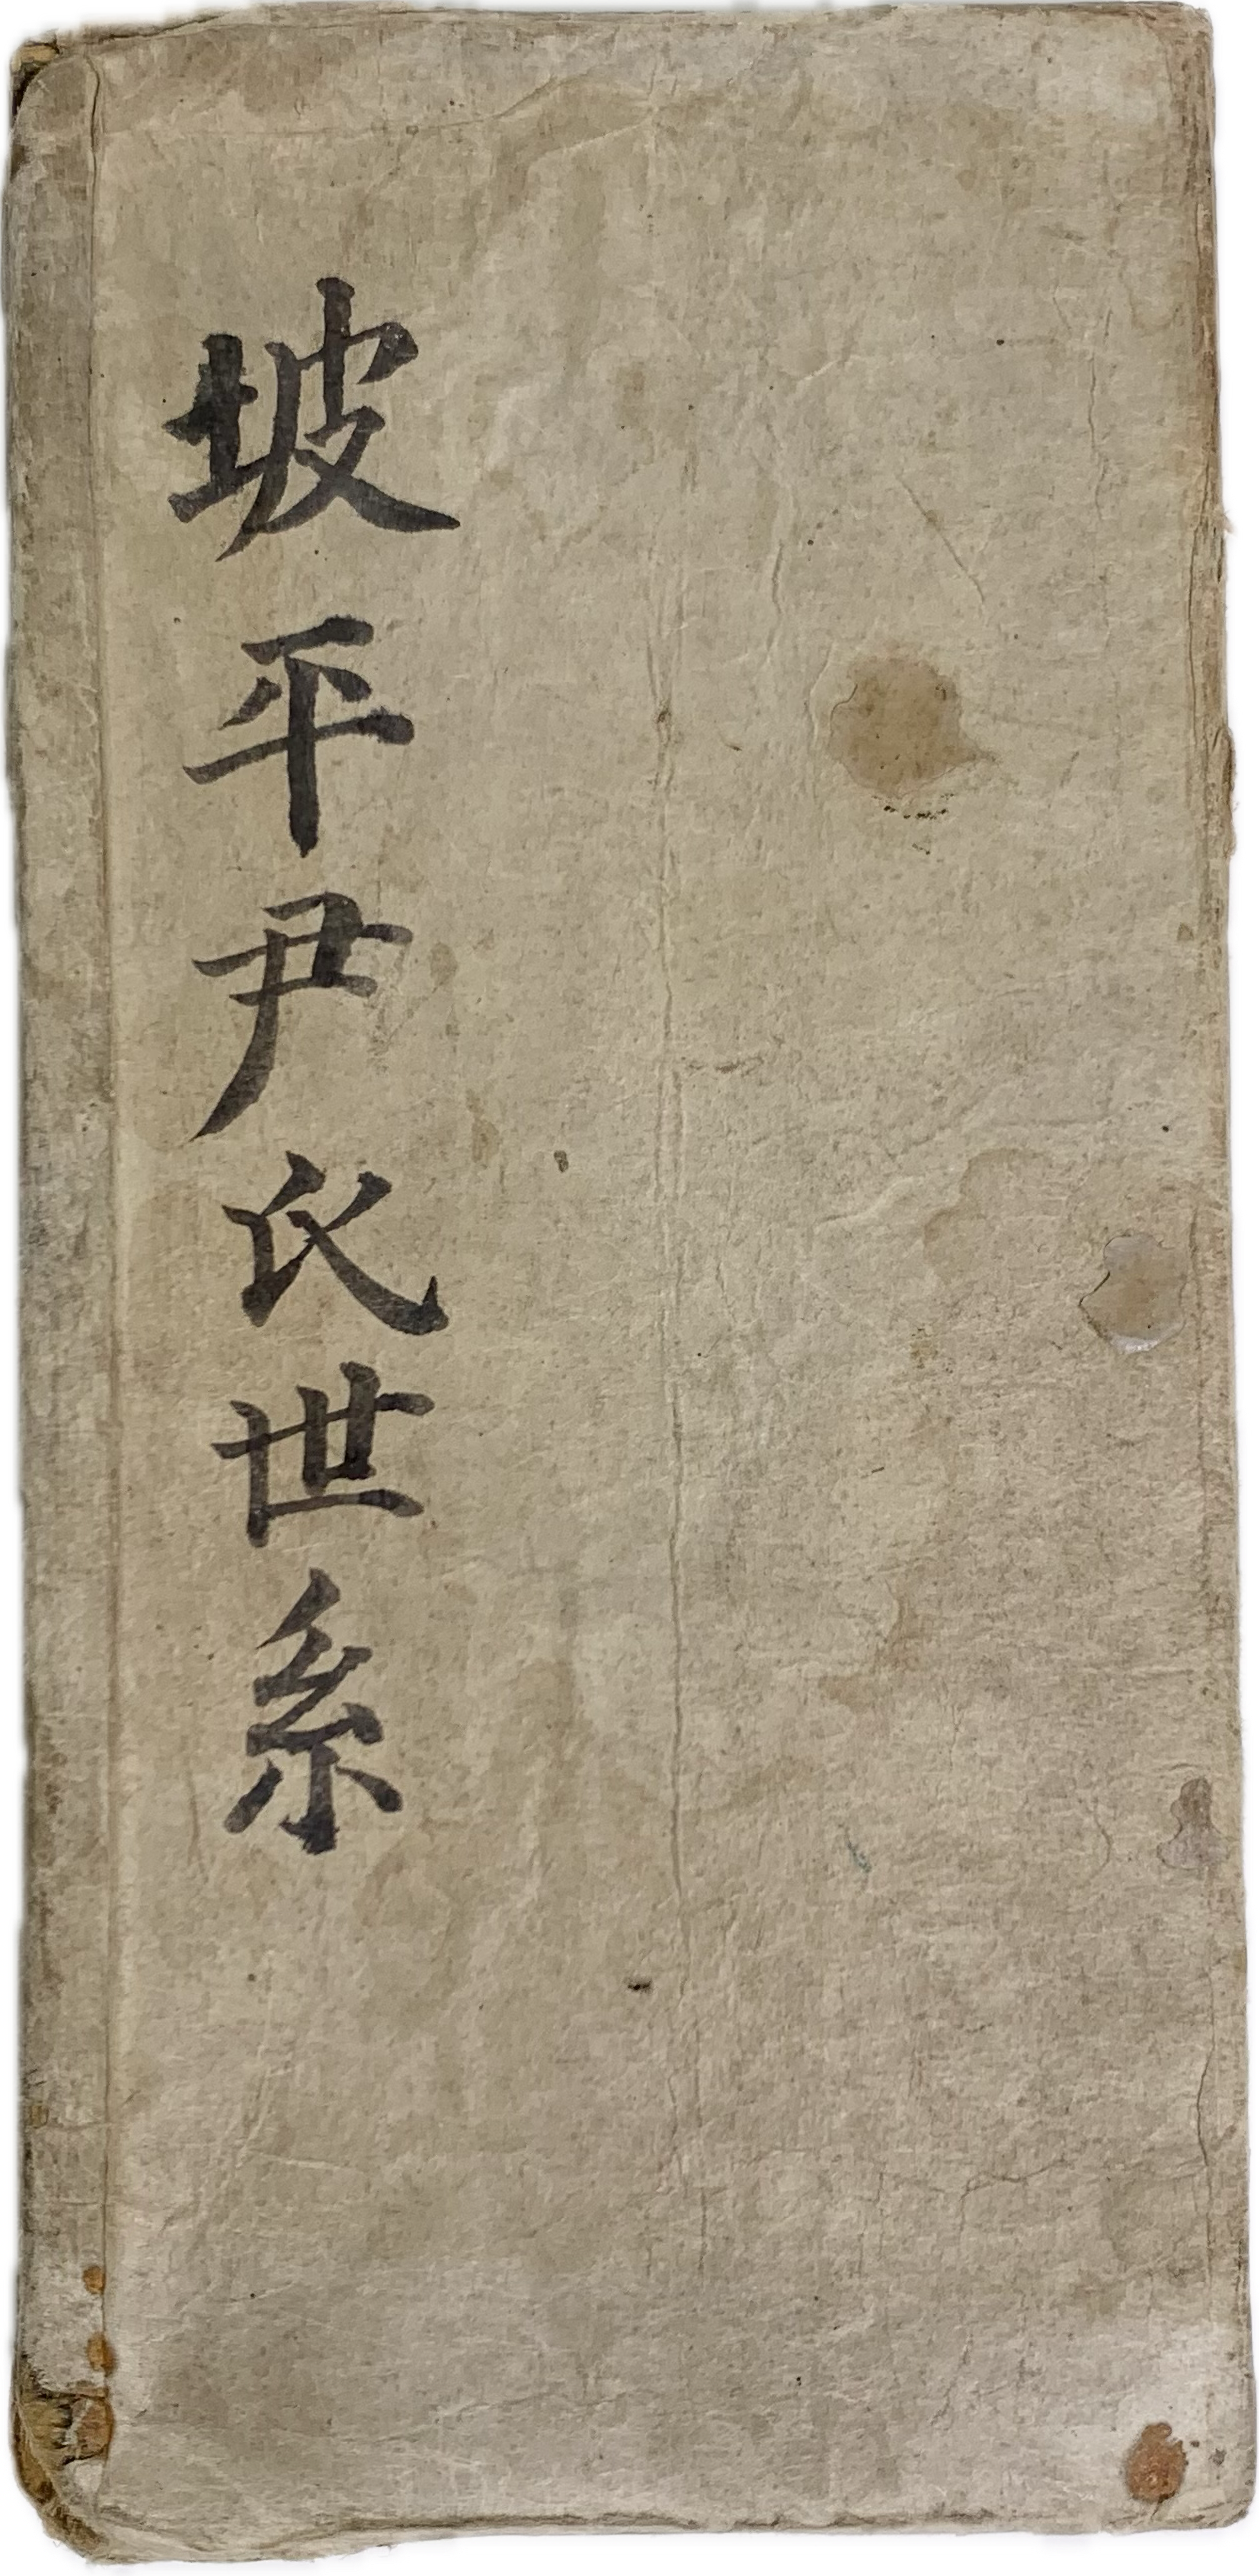 坡平尹氏世系